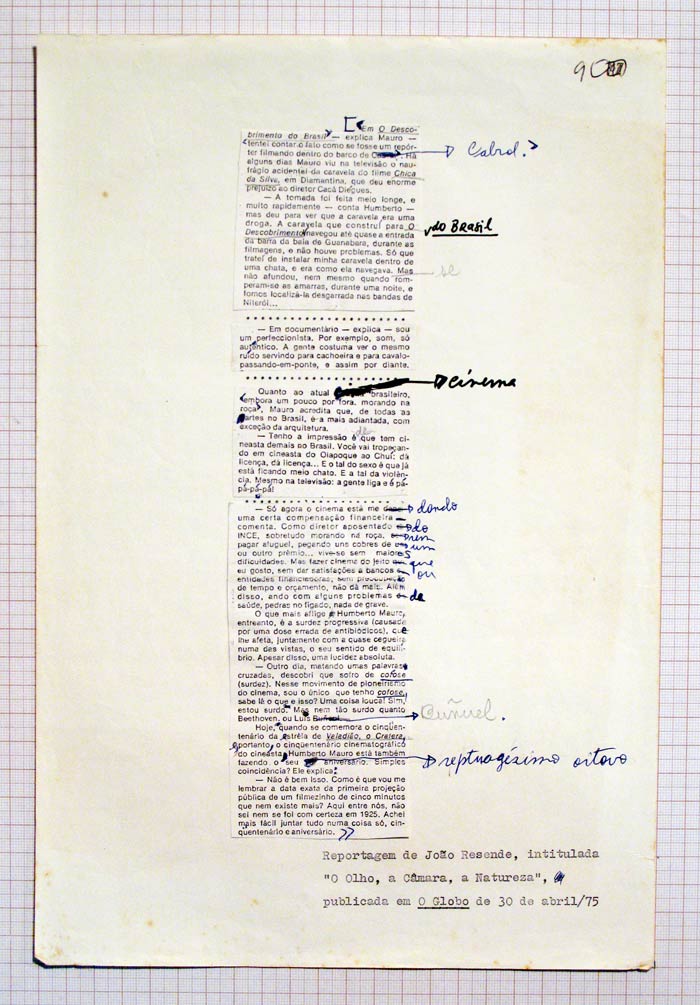 Em O Desco-
brimento do Brasil — explica Mauro —
tentei contar o fato como se fosse um repór-
ter filmando dentro do barco de Cabral. Há
alguns dias Mauro viu na televisão o nau-
frágio acidental da caravela do filme Chica
da Silva, em Diamantina, que deu enorme
prejuízo ao diretor Cacá Diegues.
— A tomada foi feita meio longe, e
muito rapidamente — conta Humberto —
mas deu para ver que a caravela era uma
droga. A caravela que construí para O
Descobrimento navegou até quase a entrada do Brasil
da barra da baía de Guanabara, durante as
filmagens, e não houve problemas. Só que
tratei de instalar minha caravela dentro de
uma chata, e era como ela navegava. Mas se
não afundou, nem mesmo quando rom-
peram-se as amarras, durante uma noite, e
fomos localizá-la desgarrada nas bandas de
Niterói...
— Em documentário — explica — sou
um perfeccionista. Por exemplo, som, só
autêntico. A gente costuma ver o mesmo
ruído servindo para cachoeira e para cavalo-
passando-em-ponte, e assim por diante.
Quanto ao atual cinema brasileiro,
embora um pouco por fora, morando na
roça, Mauro acredita que, de todas as
artes no Brasil, é a mais adiantada, com
exceção da arquitetura.
— Tenho a impressão é de que tem ci-
neasta demais no Brasil. Você vai tropeçan-
do em cineasta do Oiapoque ao Chuí: dá
licença, dá licença... E o tal do sexo é que já
está ficando meio chato. E a tal da violên-
cia. Mesmo na televisão: a gente liga e é pá-
pá-pá-pá!
— Só agora o cinema está me dando
uma certa compensação financeira —
comenta. Como diretor aposentado do
INCE, sobretudo morando na roça, sem
pagar aluguel, pegando uns cobres de um
ou outro prêmio... vive-se sem maiores
dificuldades. Mas fazer cinema do jeito que
eu gosto, sem dar satisfações a bancos ou
entidades financiadoras, sem preocupação
de tempo e orçamento, não dá mais. Além
disso, ando com alguns problemas de
saúde, pedras no fígado, nada de grave.
O que mais aflige Humberto Mauro,
entreanto, é a surdez progressiva (causada
por uma dose errada de antibióticos), que
lhe afeta, juntamente com a quase cegueira
numa das vistas, o seu sentido de equilí-
brio. Apesar disso, uma lucidez absoluta.
— Outro dia, matando umas palavras
cruzadas, descobri que sofro de cofose
(surdez). Nesse movimento de pioneirismo
do cinema, sou o único que tenho cofose,
sabe lá o que é isso? Uma coisa louca! Sim,
estou surdo. Mas nem tão surdo quanto
Beethoven, ou Luis Buñuel.
Hoje, quando se comemora o cinqüen-
tenário da estréia de Valadião, o Cratera,
portanto, o cinqüentenário cinematográfico
do cineasta, Humberto Mauro está também
fazendo o seu septuagésimo oitavo aniversário. Simples
coincidência? Ele explica:
— Não é bem isso. Como é que vou me
lembrar a data exata da primeira projeção
pública de um filmezinho de cinco minutos
que nem existe mais? Aqui entre nós, não
sei nem se foi com certeza em 1925. Achei
mais fácil juntar tudo numa coisa só, cin-
qüentenário e aniversário.
Reportagem de João Resende, intitulada
"O Olho, a Câmara, a Natureza",
publicada em O Globo de 30 de abril/75